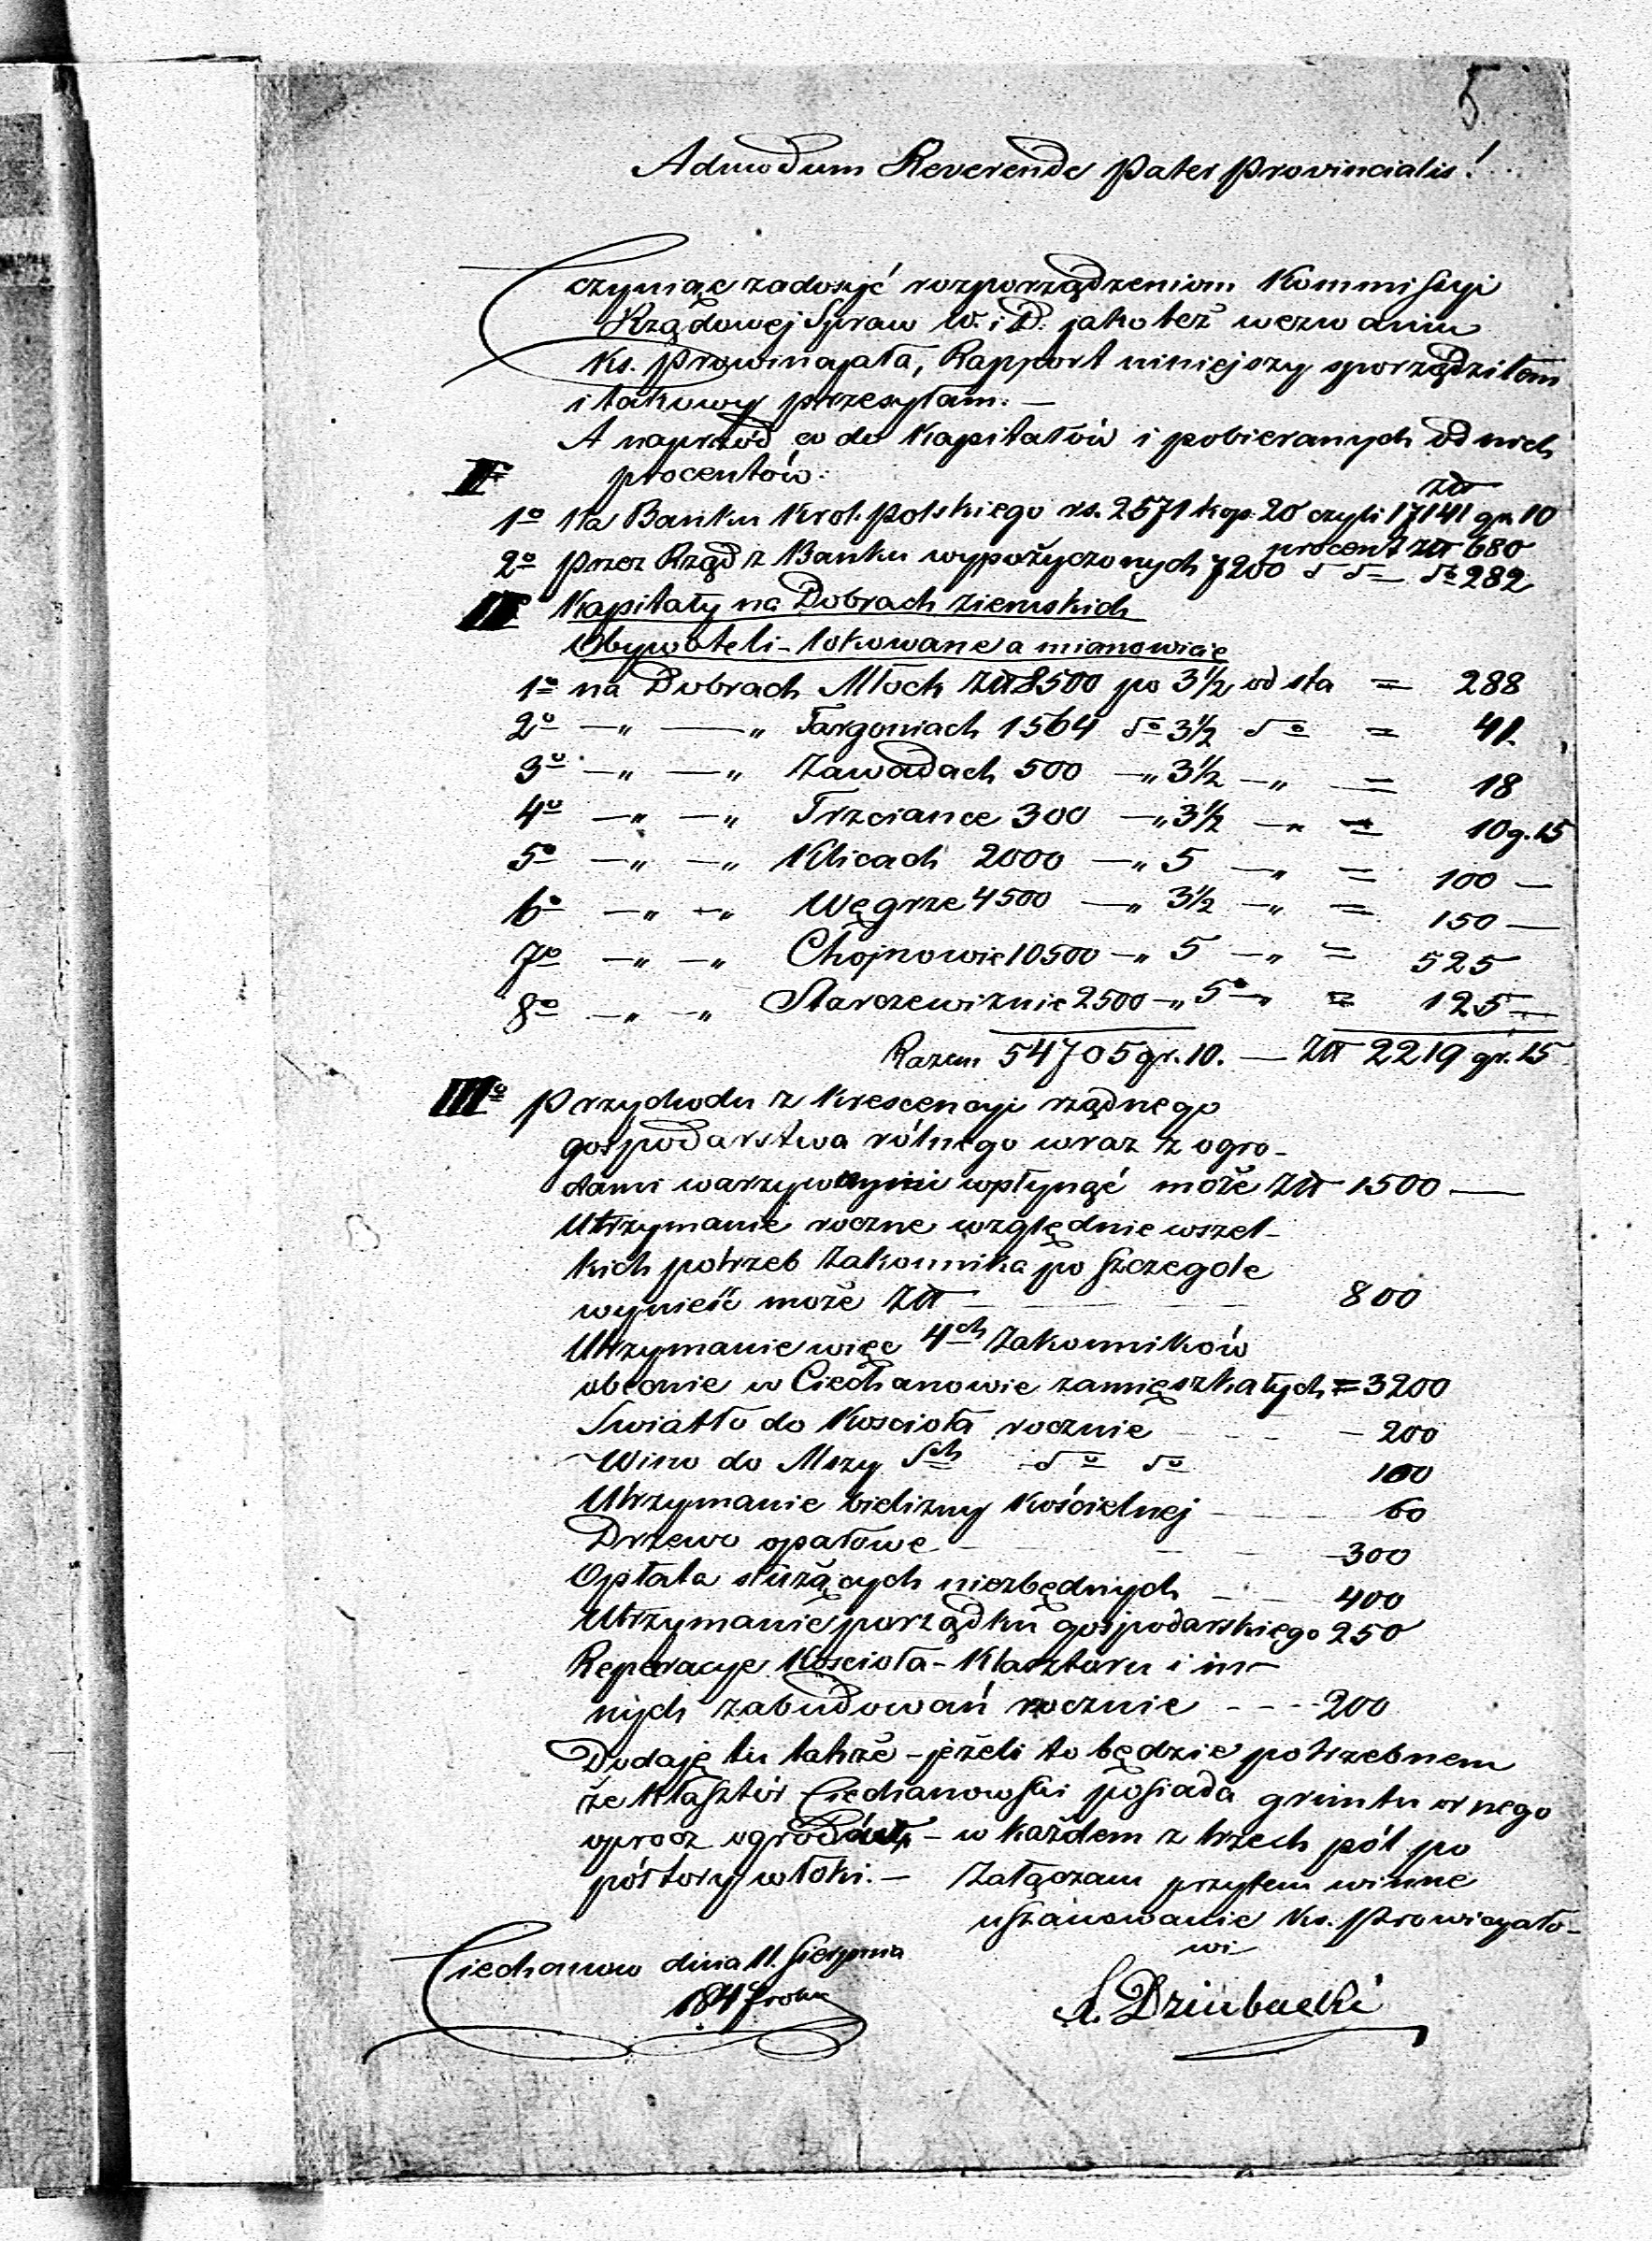 5.
Admodum Reverende Pater Provincialis!
Czyniąc zadosyć rozporządzeniom Kommissyi
Rządowej Spraw W. i D. jako też wezwaniu
Ks. Prowincyała, Rapport niniejszy sporządziłem
i takowy przesyłam. —
A naprzód co do Kapitałów i pobieranych od nich
I° procentów:
1° Na Banku Król. Polskiego rs. 2571 kop. 20 czyli złł 17141 gr. 10
procent złł 680
2° Przez Rząd z Banku wypożyczonych 7200 d° d° d° 282
II° Kapitały na Dobrach ziemskich
Obywateli - lokowane a mianowicie
1° na Dobrach Młock złł 8500 po 3½ od sta = 288
2° —„ —„ Targoniach 1564 d° 3½ d° = 41.
3° —„ —„ Zawadach 500 —„ 3½ —„ = 18
4° —„ —„ Trzciance 300 —„ 3½ —„ = 10 g. 15
5° —„ —„ Klicach 2000 —„ 5 —„ = 100 —
6° —„ —„ Węgrze 4500 —„ 3½ —„ = 150 —
7° —„ —„ Chojnowie 10500 —„ 5 —„ = 525
8° —„ —„ Starczewiznie 2500 —„ 5° —„ = 125 =
Razem 54705 gr. 10. — złł 2219 gr. 15
III° Przychodu z krescencyi rządnego
gospodarstwa rólnego wraz z ogro-
dami warzywnymi wpłynąć może złł 1500 —
Utrzymanie roczne względnie wszel-
kich potrzeb Zakonnika po szczególe
wynieść może złł — 800
Utrzymanie więc 4ch Zakonników
obecnie w Ciechanowie zamięszkałych = 3200
Swiatło do Kościoła rocznie — 200
Wino do Mszy Sch d° d° 100
Utrzymanie bielizny Kościelnej — 60
Drzewo opałowe — 300
Opłata służących niezbędnych — 400
Utrzymanie porządku gospodarskiego 250
Reperacye Kościoła - Klasztoru i in-
nych zabudowań rocznie - - - 200
Dodaję tu także - jeżeli to będzie potrzebnem
że Klasztór Ciechanowski posiada gruntu ornego
oprocz ogrodów - w każdem z trzech pól po
półtory włoki. — Załączam przytem winne
uszanowanie Ks. Prowicyało-
wi
Ciechanow dnia 11. Sierpnia
1847 roku
A. Dziubacki